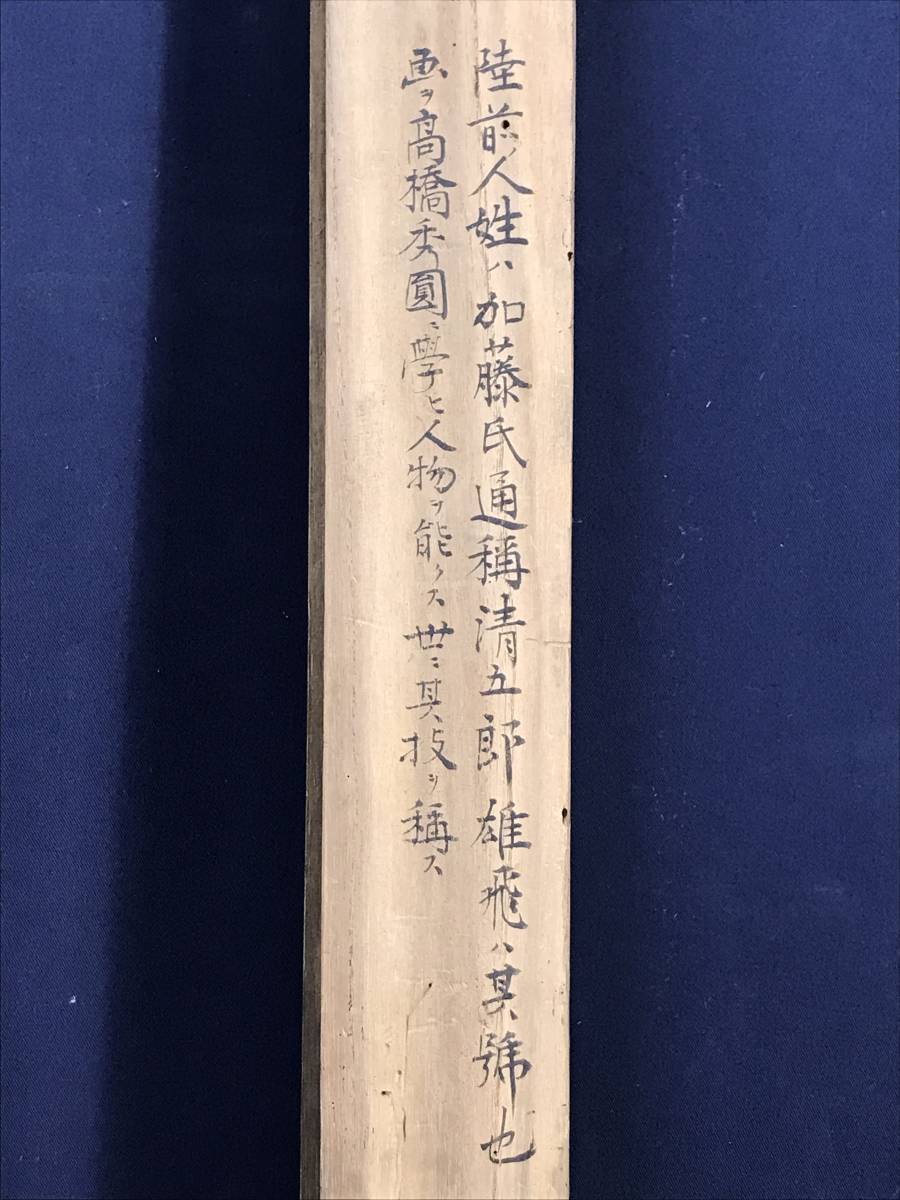 陸前ノ人姓ハ加藤氏通稱清五郎雄飛ハ其號也
画ヲ高橋秀圓ニ學ヒ人物ヲ能クス世ニ其技ヲ稱ス